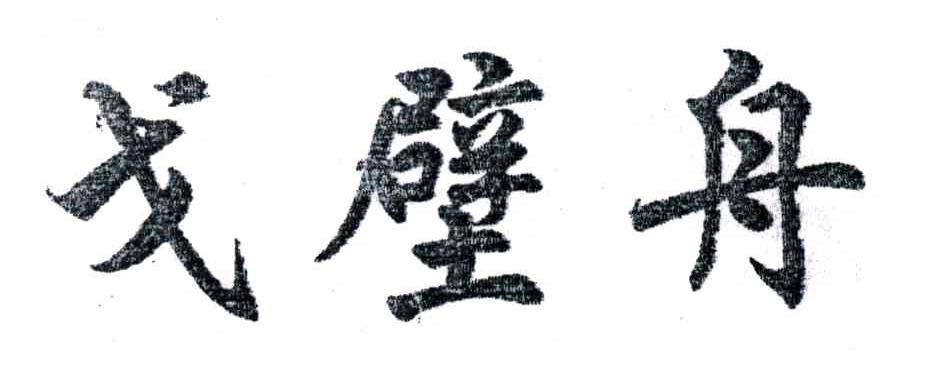 戈壁舟